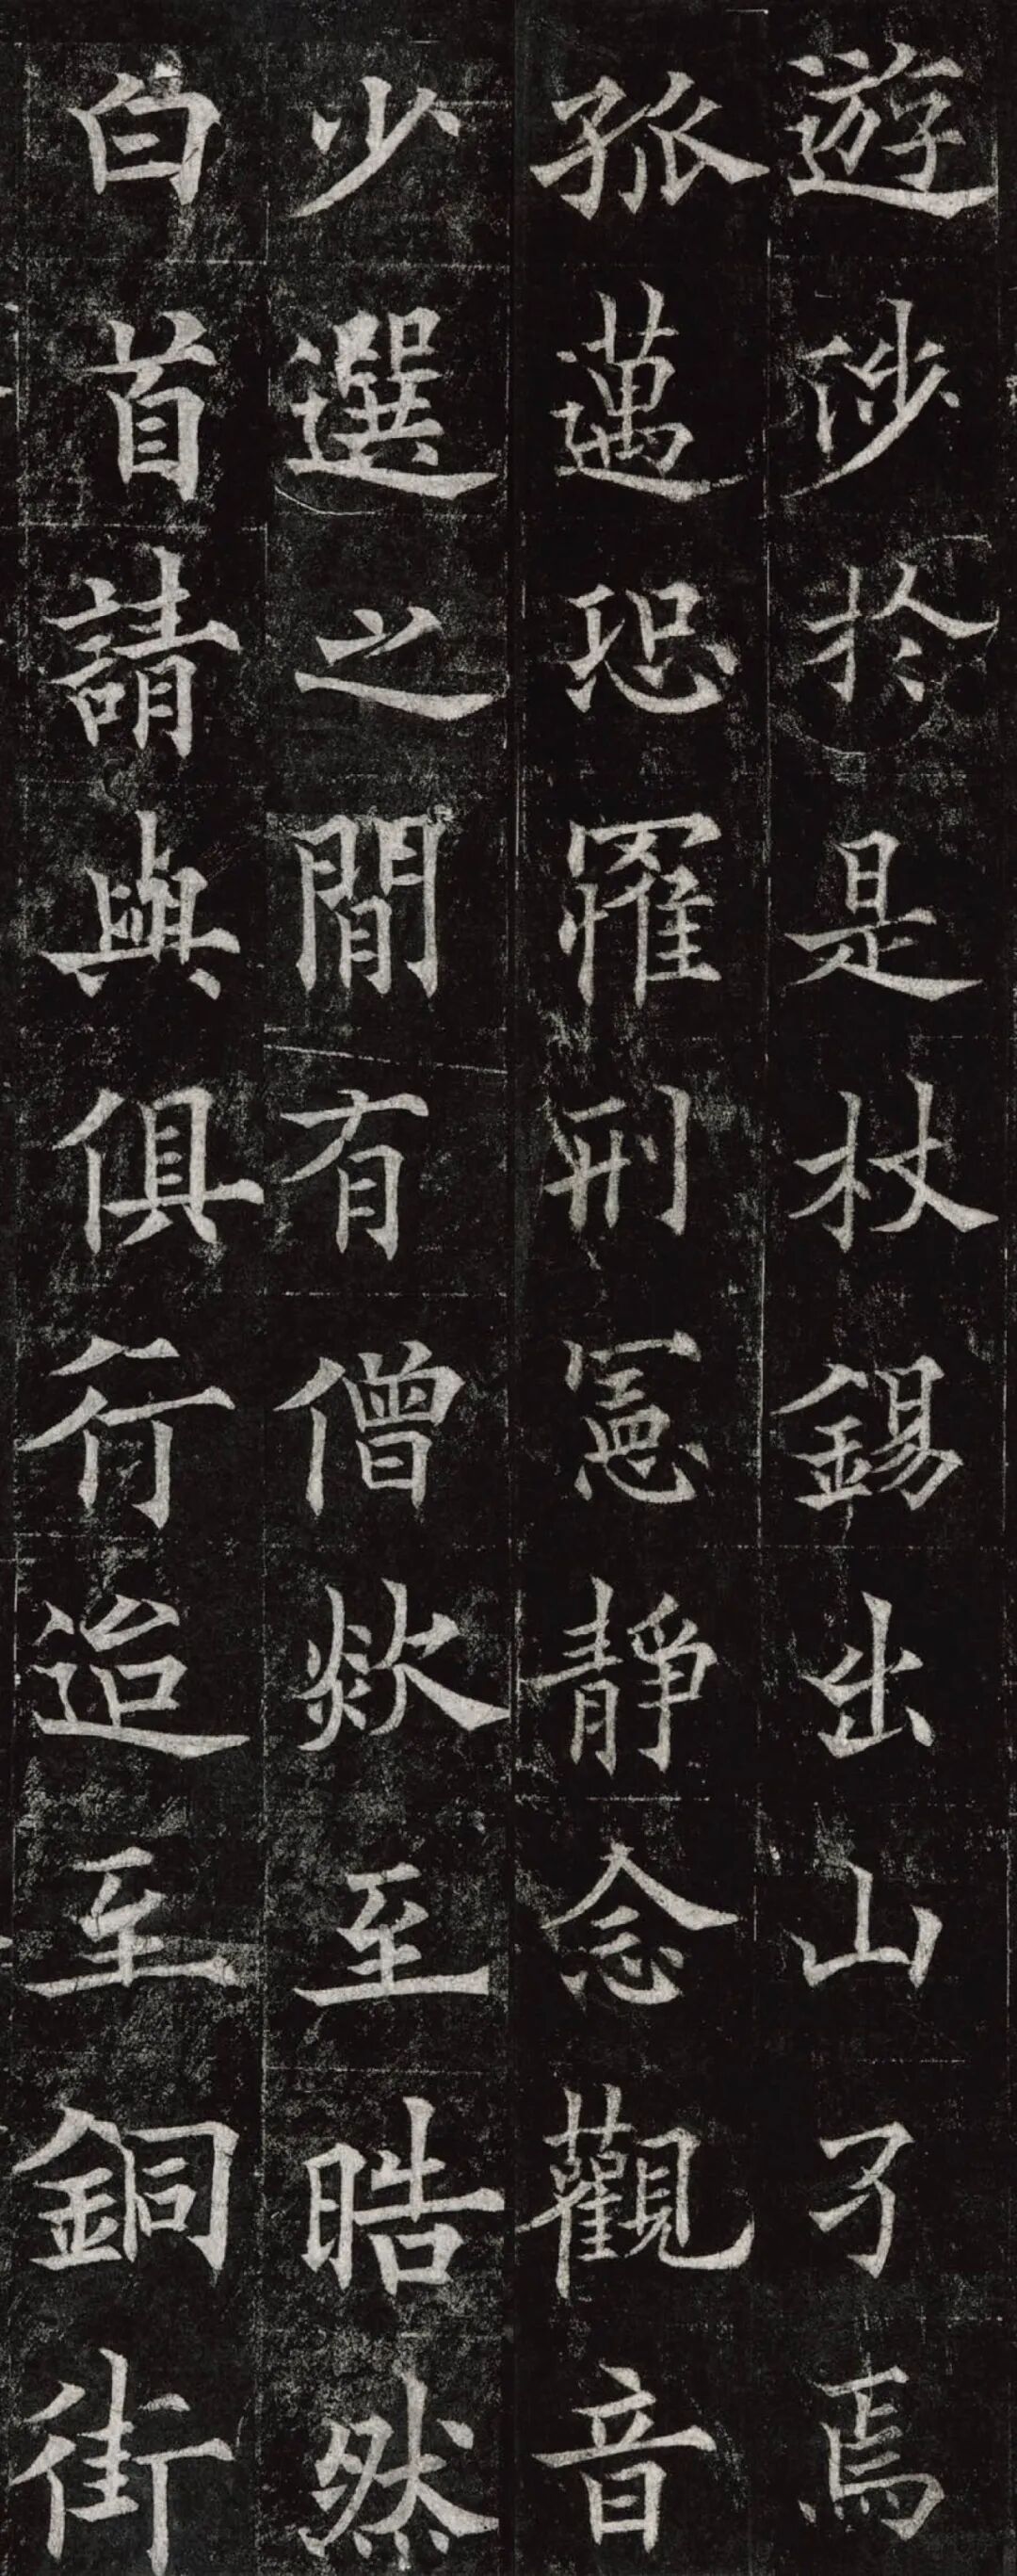 遊涉於是杖錫出山孑焉
孤邁恐罹刑憲靜念觀音
少選之閒有僧欻至晧然
白首請與俱行迨至銅街